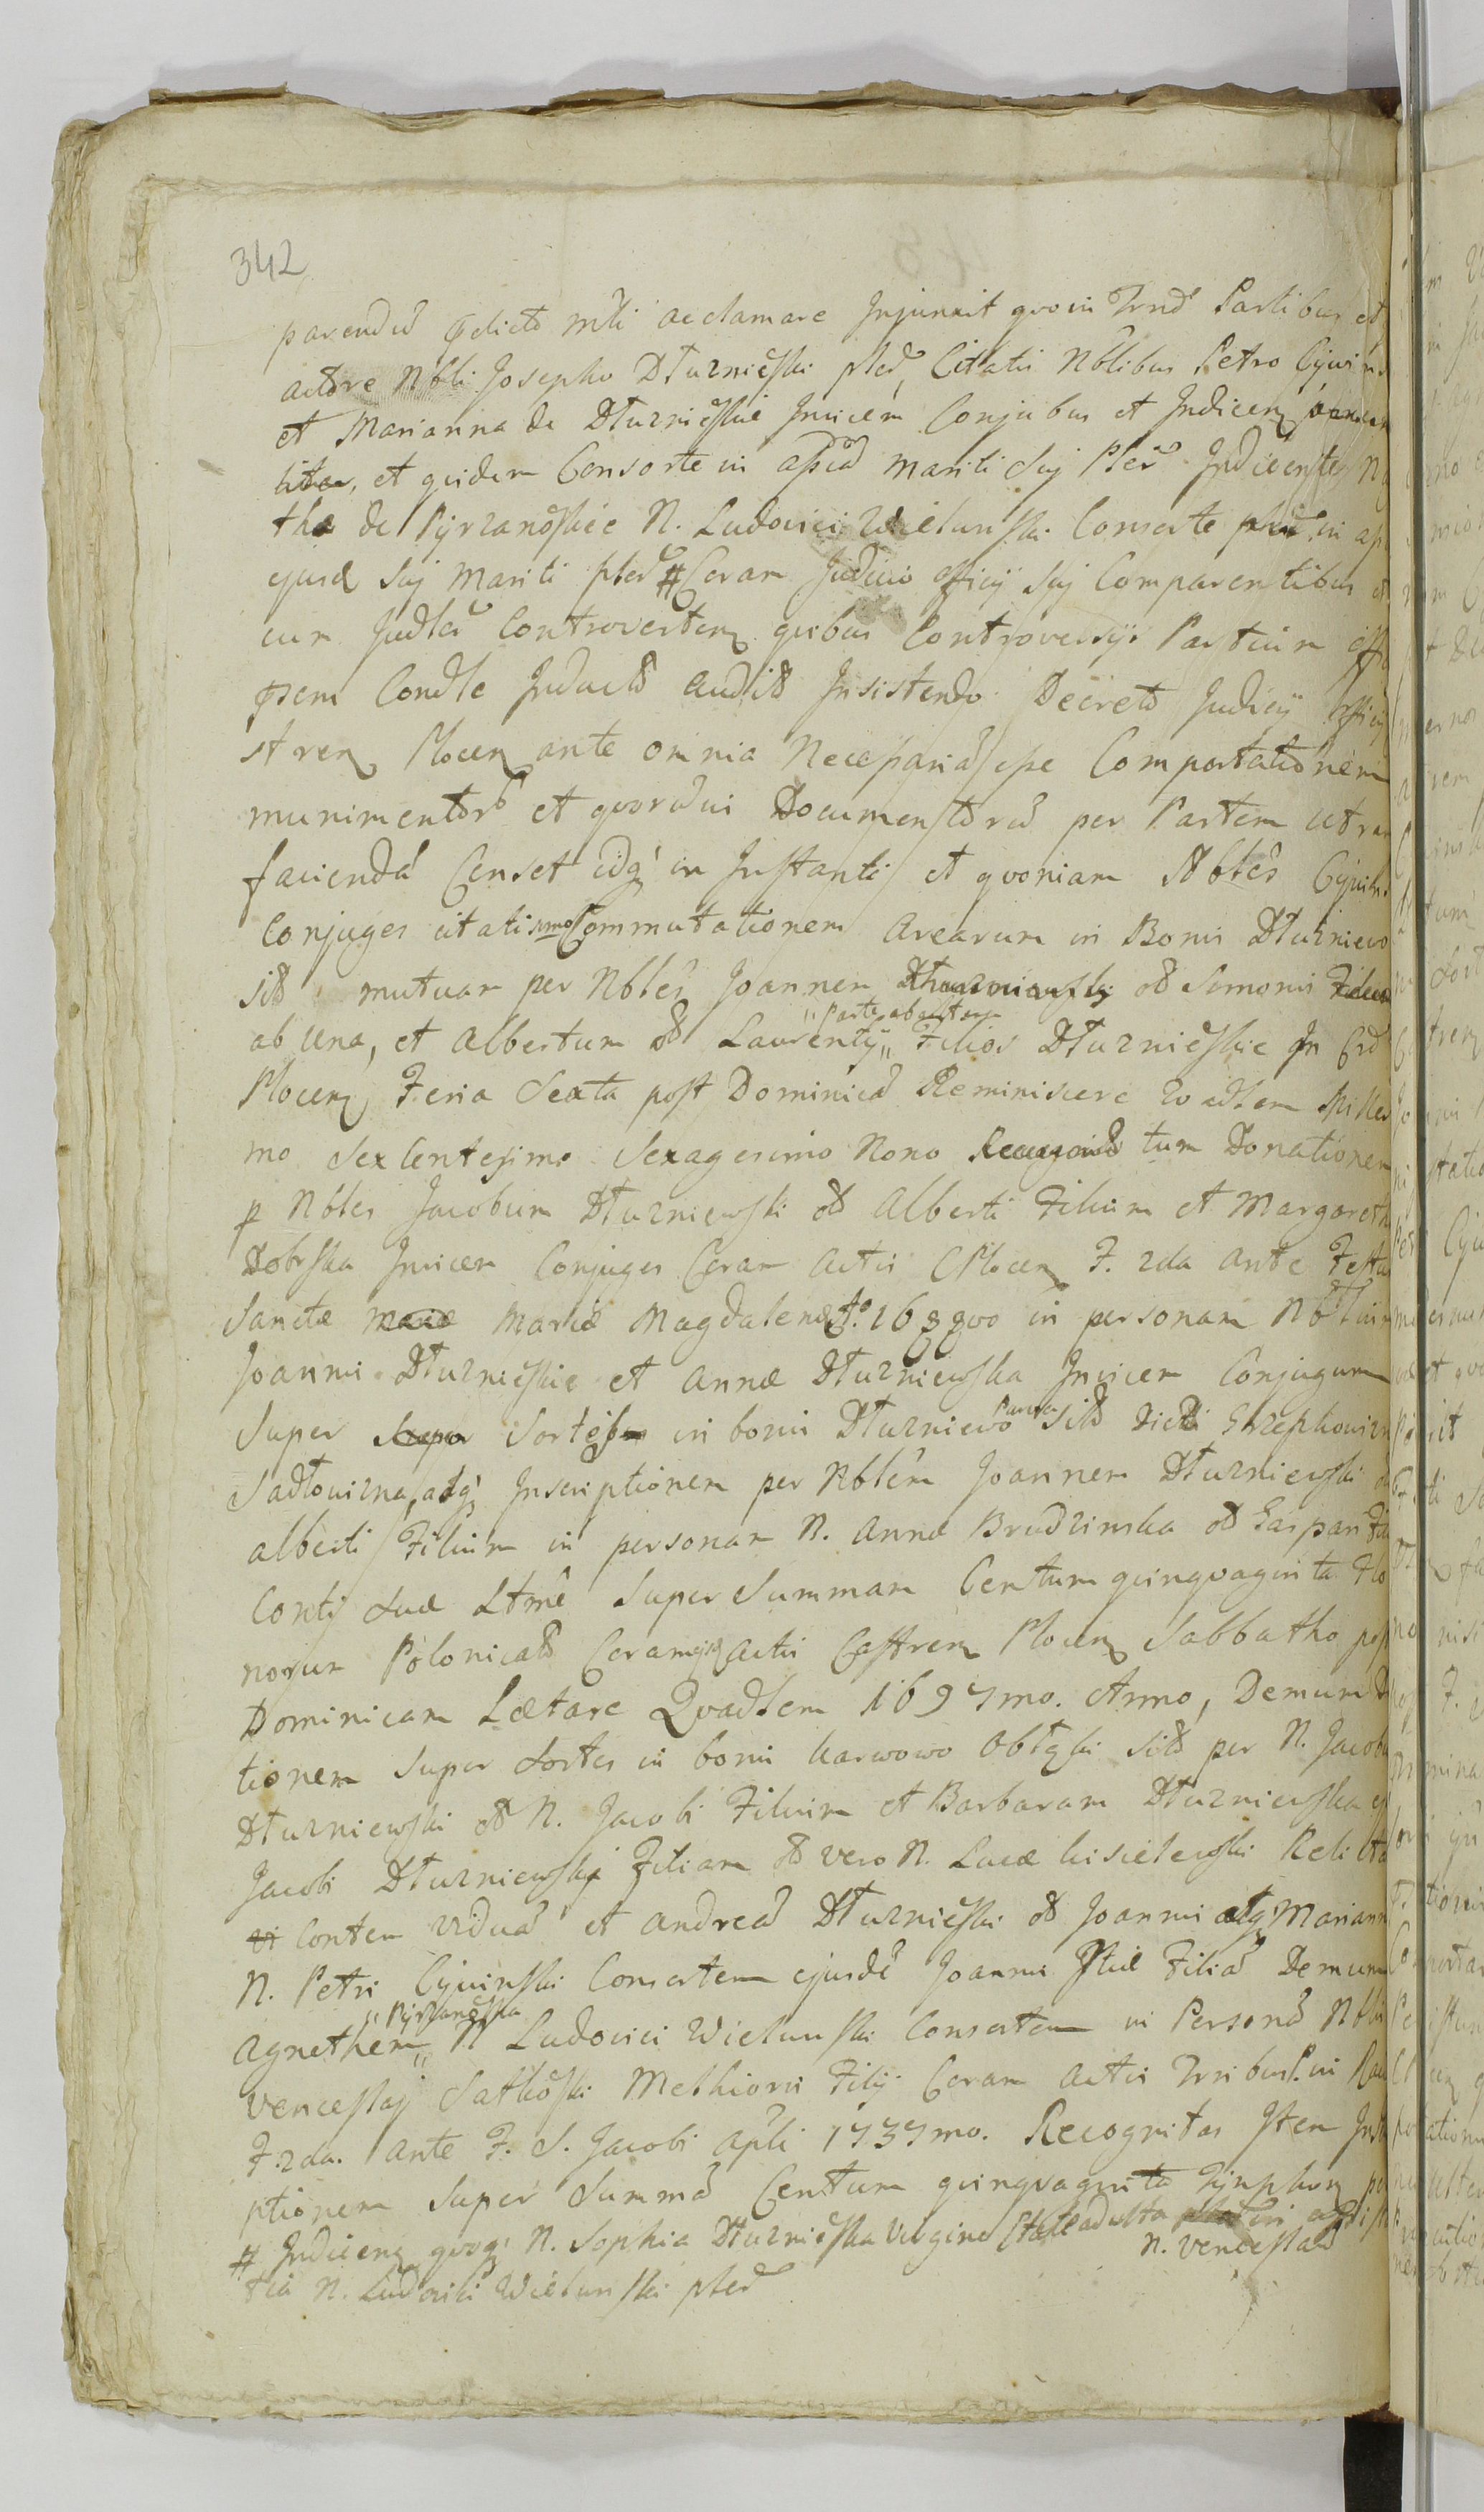 342
parendū pdicto mti acclamare Injunxit quo in Trno Partibus et
actore Nbli Josepho Dłuzniewski pted, Citatis Nblibus Petro Cywins
et Marianna de Dłuzniewskie Invicem Conjubus et Indicen
liter, et quidem Consorte in assa mariti Suj Pter Indicentes N
tha de Pyrzanowskie N. Ludovici Wielunski Consorte in ap
ejusd Suj Mariti pted # Coram Judicio officij Suj Comparentibus et
eum Judter Controverten quibus Controversijs Partium
psem Condle Inductis auditis Insistendo Decreto Judicij officij
stren Plocen ante omnia Necessariā esse Comportationem
munimentor et quorūvis Documentorū per Partem utram
faciendā Censet idq in Instanti et quoniam Nbles Cywins
Conjuges citati imo Commutationem Arearum in Bonis Dłuzniewo
sit mutuam per Nbles Joannem Dłuzniewski od Simonis Filium
ab una, et Albertum od Laurentij " parte ab altera " Filios Dłuzniewskie In Crd
Plocen Feria Sexta post Dominicā Reminiscere Quadlem Milles
mo Sexcentesimo Sexagesimo Nono Recognit tum Donationem
p Nbles Jacobum Dłuzniewski od Alberti Filium et Margareth
Dobrska Invicem Conjuges Coram Actis CPlocen F. 2da ante Festu
Sanctæ Mariæ Mariæ Magdalenæ Ao. 1688vo in personam Nblium
Joannis Dłuzniewskie et Annæ Dłuzniewska Invicem Conjugum
Super Super Sortes in bonis Dłuzniewo Parva sit dicti Strzephowizn
Sadłowizna, atq Inscriptionem per Nblem Joannem Dłuzniewski
alberti Filium in personam N. Annæ Brudzinska od Gaspari Fil
Contj Suæ Ltme Super Summam Centum quinquaginta Flo
norum Polonicalt Coram Actis Castren Plocen Sabbatho post
Dominicam Lætare Quadlem 1697mo. Anno, Demum D
tionem Super Sortes in bonis karwowo Obłęki sit per N. Jacobu
Dłuzniewski od N. Jacobi Filium et Barbaram Dłuzniewska
Jacobi Dłuzniewskj Filiam od vero N. Lucæ kisielewski Relicta
vi Contem viduā et andreā Dłuzniewski od Joannis atq Mariann
N. Petri Cywinski Consortem ejusdē Joannis Filiā Demum
Agnethem " Pyrzanowska " N Ludovici Wielunski Consortem in Personā Nblis
Venceslaj Sutkowski Melhioris Filij Coram Actis Trribus. in
F. 2da. ante F. S. Jacobi Apli 1737mo. Recognitas Item Inscri
ptionem Super Summā Centum quinquaginta Tynphon per
# Indicen quoq N. Sophia Dłuzniewska Virgine Etate adulta N. Venceslao
tia N. Ludovici Wielunski pted